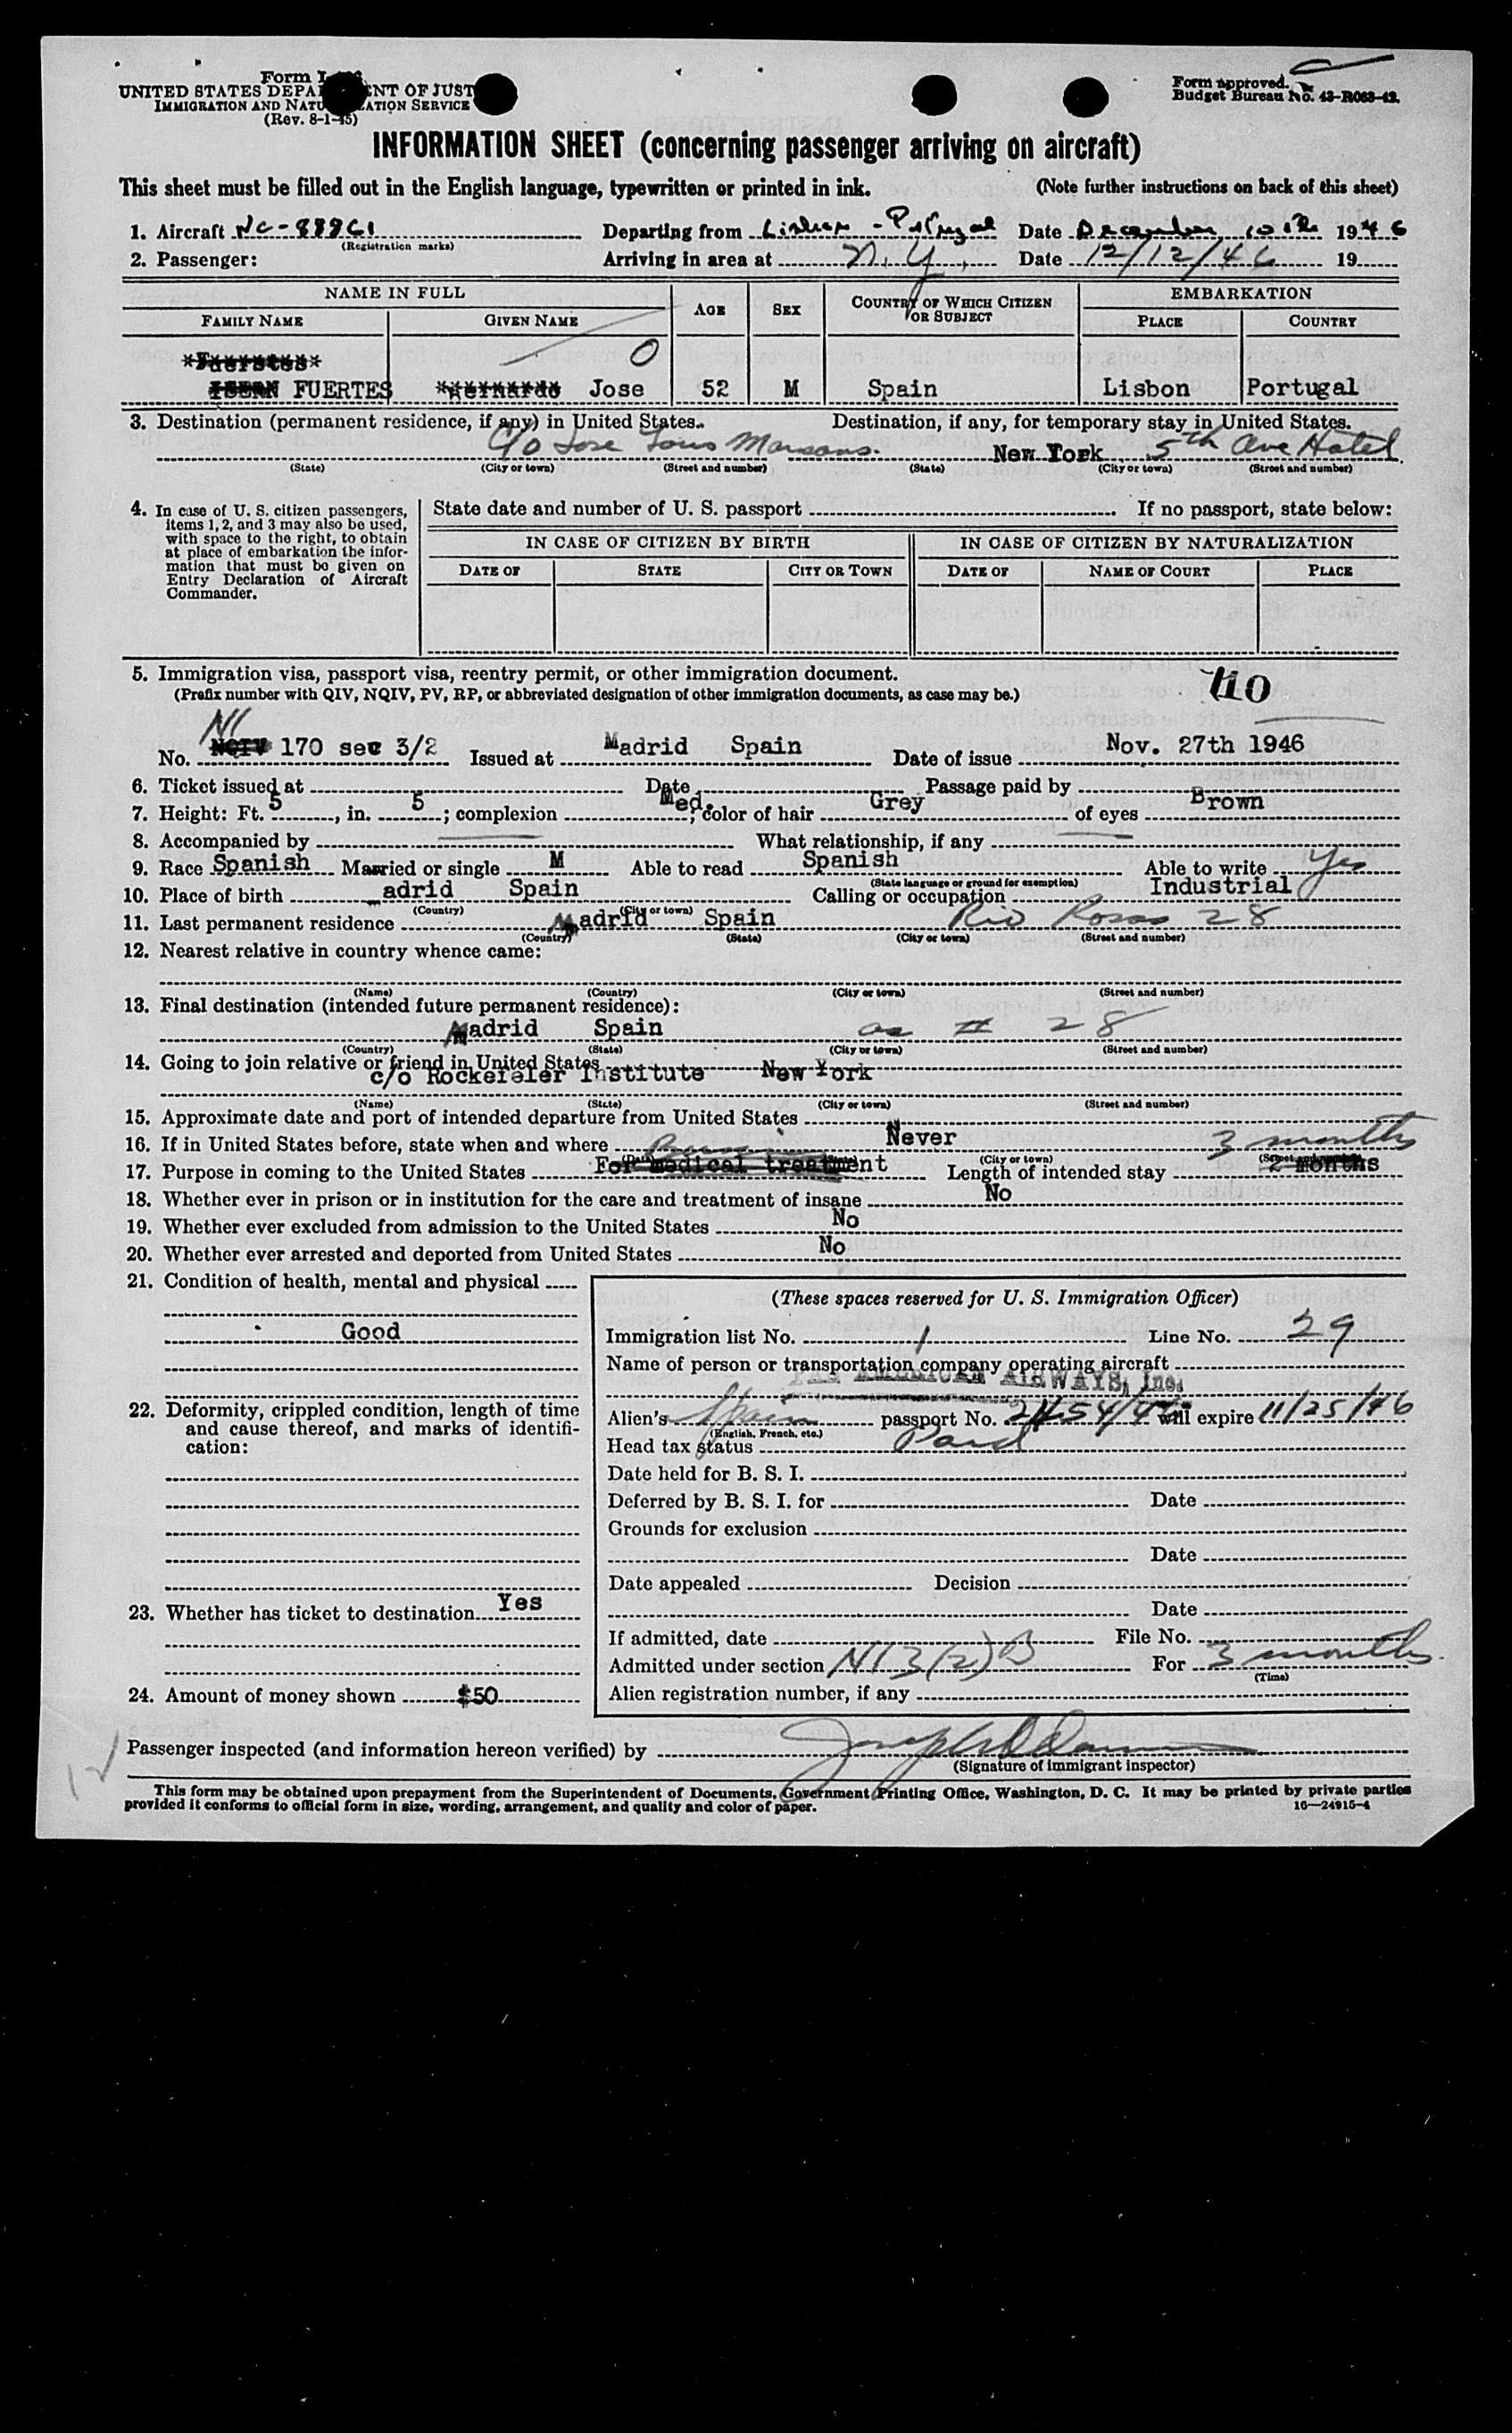 Form I-466
UNITED STATES DEPARTMENT OF JUST
IMMIGRATION AND NATURALIZATION SERVICE
(Rev. 8-1-45)
Form approved.
Budget Bureau No. 43-R063-42.
INFORMATION SHEET (concerning passenger arriving on aircraft)
This sheet must be filled out in the English language, typewritten or printed in ink. (Note further instructions on back of this sheet)
1. Aircraft NC-88861 Departing from Lisbon - Portugal Date December 10th 1946
(Registration marks)
2. Passenger: Arriving in area at N.Y. Date 12/12/46 19
NAME IN FULL AGE SEX COUNTRY OF WHICH CITIZEN OR SUBJECT EMBARKATION
FAMILY NAME GIVEN NAME PLACE COUNTRY
FUERTES Jose 52 M Spain Lisbon Portugal
3. Destination (permanent residence, if any) in United States. Destination, if any, for temporary stay in United States.
C/o Jose New York 5th Ave Hotel
(State) (City or town) (Street and number) (State) (City or town) (Street and number)
4. In case of U. S. citizen passengers, items 1, 2, and 3 may also be used, with space to the right, to obtain at place of embarkation the information that must be given on Entry Declaration of Aircraft Commander.
State date and number of U. S. passport If no passport, state below:
IN CASE OF CITIZEN BY BIRTH IN CASE OF CITIZEN BY NATURALIZATION
DATE OF STATE CITY OR TOWN DATE OF NAME OF COURT PLACE
5. Immigration visa, passport visa, reentry permit, or other immigration document.
(Prefix number with QIV, NQIV, PV, RP, or abbreviated designation of other immigration documents, as case may be.)
No. NI 170 sec 3/2 Issued at Madrid Spain Date of issue Nov. 27th 1946
6. Ticket issued at Date Passage paid by
7. Height: Ft. 5, in. 5; complexion Med.; color of hair Grey of eyes Brown
8. Accompanied by What relationship, if any
9. Race Spanish Married or single M Able to read Spanish Able to write Yes
(State language or ground for exemption)
10. Place of birth adrid Spain Calling or occupation Industrial
(Country) (City or town)
11. Last permanent residence Madrid Spain Rio Rosas 28
(Country) (State) (City or town) (Street and number)
12. Nearest relative in country whence came:
(Name) (Country) (City or town) (Street and number)
13. Final destination (intended future permanent residence):
Madrid Spain as # 28
(Country) (State) (City or town) (Street and number)
14. Going to join relative or friend in United States
c/o Rockefeler Institute New York
(Name) (State) (City or town) (Street and number)
15. Approximate date and port of intended departure from United States
16. If in United States before, state when and where Never
(City or town)
17. Purpose in coming to the United States For medical treatment Length of intended stay 3 months 2 months
18. Whether ever in prison or in institution for the care and treatment of insane No
19. Whether ever excluded from admission to the United States No
20. Whether ever arrested and deported from United States No
21. Condition of health, mental and physical
Good
22. Deformity, crippled condition, length of time and cause thereof, and marks of identification:
23. Whether has ticket to destination Yes
24. Amount of money shown $50
(These spaces reserved for U. S. Immigration Officer)
Immigration list No. 1 Line No. 29
Name of person or transportation company operating aircraft
PAN AMERICAN AIRWAYS, Inc.
Alien's Spain passport No. will expire 11/25/46
(English, French, etc.)
Head tax status Paid
Date held for B. S. I.
Deferred by B. S. I. for Date
Grounds for exclusion
Date
Date appealed Decision
Date
If admitted, date File No.
Admitted under section NI 3(2) B For 3 months
(Time)
Alien registration number, if any
Passenger inspected (and information hereon verified) by
(Signature of immigrant inspector)
This form may be obtained upon prepayment from the Superintendent of Documents, Government Printing Office, Washington, D. C. It may be printed by private parties
provided it conforms to official form in size, wording, arrangement, and quality and color of paper. 16—24915-4